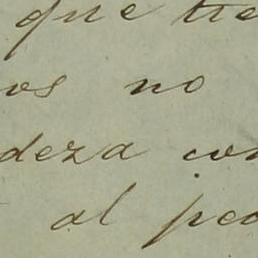 que tie
os no
deza con
al pec